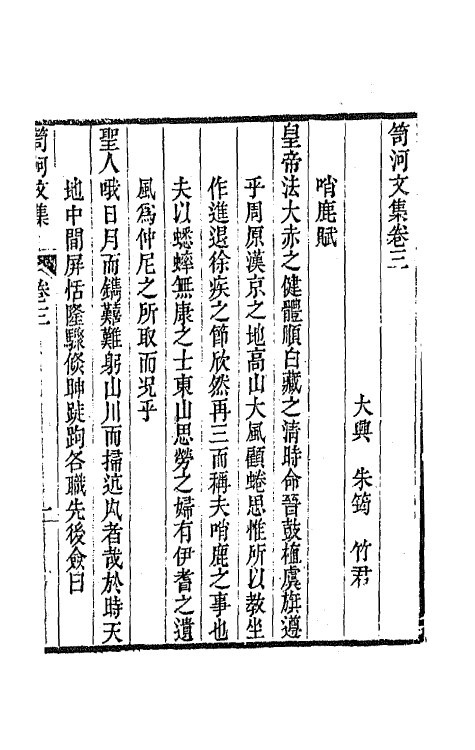 笥河文集卷三
大興　朱筠　竹君
哨鹿賦
皇帝法大赤之健體順白藏之清時命晉鼓植虞旗遵
乎周原漢京之地高山大風顧蜷思惟所以教坐
作進退徐疾之節欣然再三而稱夫哨鹿之事也
夫以蟋蟀無康之士東山思勞之婦有伊耆之遺
風爲仲尼之所取而況乎
聖人哦日月而鐫囏難躬山川而掃迒凪者哉於時天
地中間屏恬隆驟倏眒踛跔各職先後僉曰
笥河文集　卷三　一